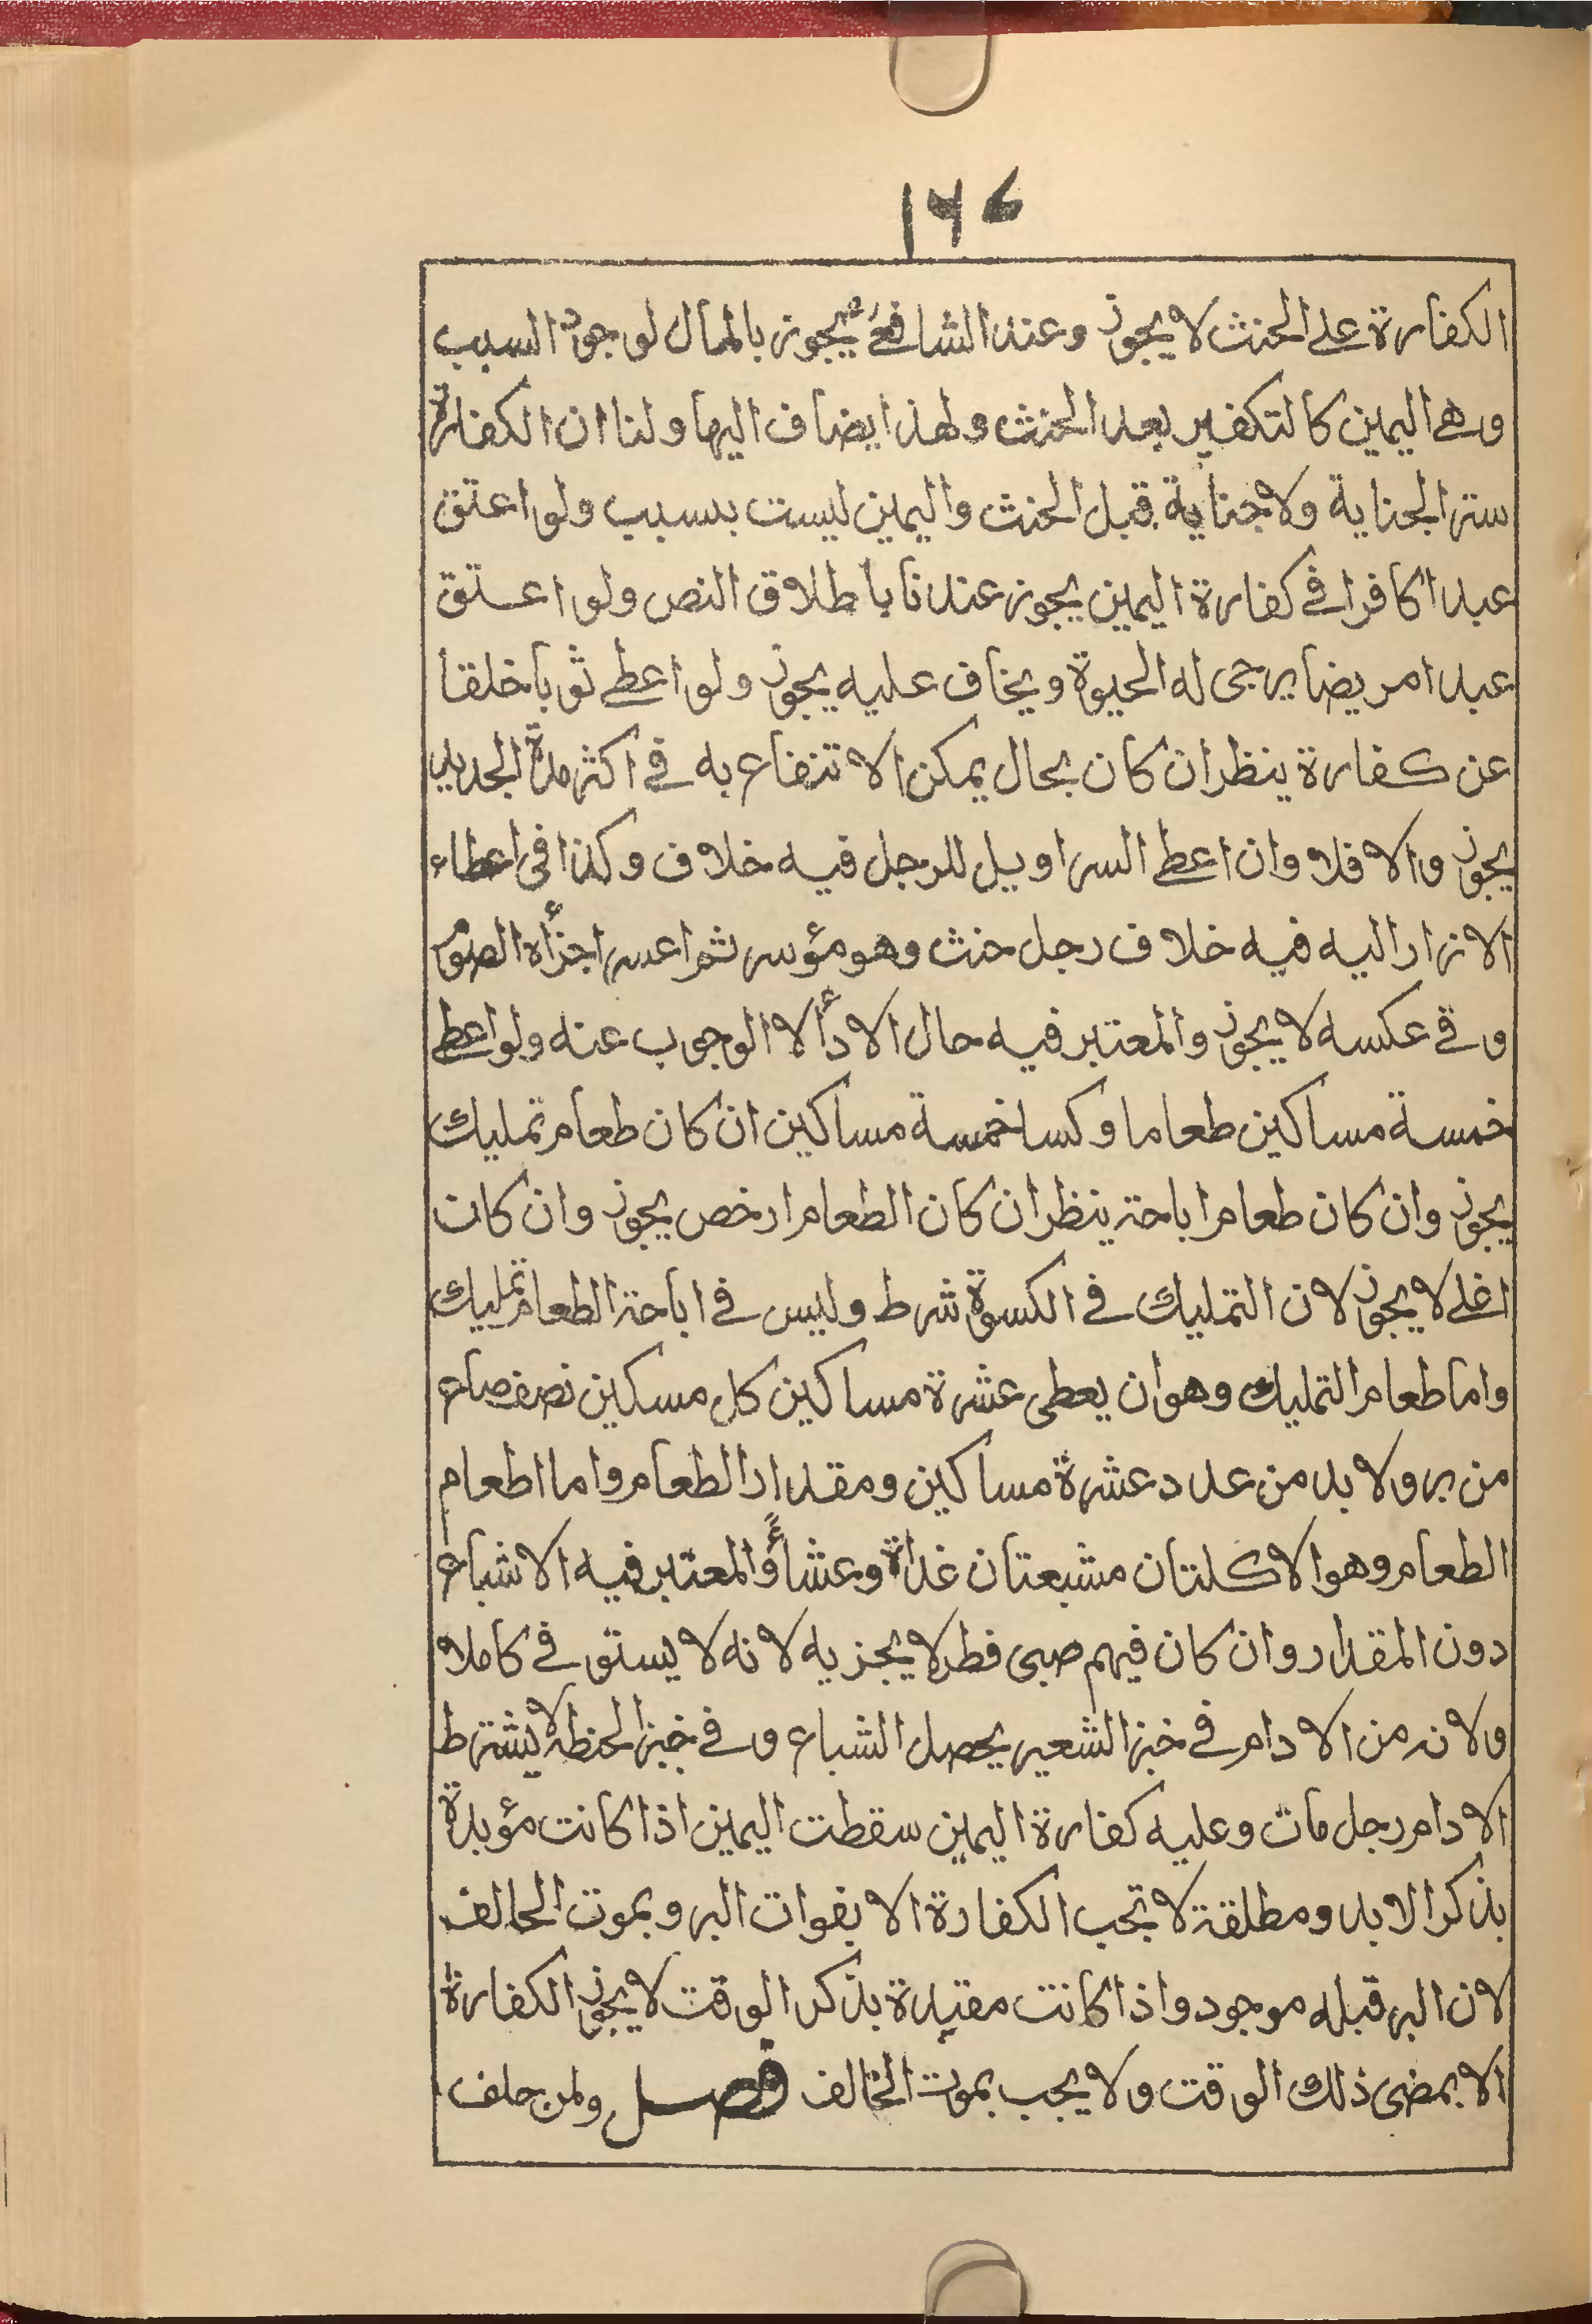 ١٦٤
الكفارة على الحنث لا يجوز وعند الشافعي يجوز بالمال لوجود السبب
وهى اليمين كالتكفير بعد الحنث ولهذا يضاف اليها ولنا ان الكفارة
ستر الجناية ولا جناية قبل الحنث واليمين ليست بسبب ولو اعتق
عبدا كافرا فى كفارة اليمين يجوز عندنا باطلاق النص ولو اعتق
عبدا مريضا يرجى له الحيوة ويخاف عليه يجوز ولو اعطى ثوبا خلقا
عن كفارة ينظر ان كان بحال يمكن الانتفاع به فى اكثر مدة الجديد
يجوز والا فلا وان اعطى السراويل للرجل فيه خلاف وكذا فى اعطاء
الازار اليه فيه خلاف رجل حنث وهو مؤسر ثم اعسر اجزأه الصوم
وفى عكسه لا يجوز والمعتبر فيه حال الادأ لا الوجوب عنه ولو اعطى
خمسة مساكين طعاما وكسا خمسة مساكين ان كان طعام تمليك
يجوز وان كان طعام اباحة ينظر ان كان الطعام ارخص يجوز وان كان
اغلى لا يجوز لان التمليك فى الكسوة شرط وليس فى اباحة الطعام تمليك
واما طعام التمليك وهو ان يعطى عشرة مساكين كل مسكين نصف صاع
من بر ولا بد من عدد عشرة مساكين ومقدار الطعام واما اطعام
الطعام وهو الاكلتان مشبعتان غداة وعشأ والمعتبر فيه الاشباع
دون المقدار وان كان فيهم صبى فطر لا يجزيه لانه لا يستوفى كاملا
ولانه من الادام فى خبز الشعير يحصل الشباع وفى خبز الحنطة لا يشترط
الادام رجل مات وعليه كفارة اليمين سقطت اليمين اذا كانت مؤبدة
بذكر الابد ومطلقة لا تجب الكفارة الا بفوات البر وبموت الحالف
لان البر قبله موجود واذا كانت مقيدة بذكر الوقت لا يجوز الكفارة
الا بمضى ذلك الوقت ولا يجب بموت الخالف فصل ولمن حلف